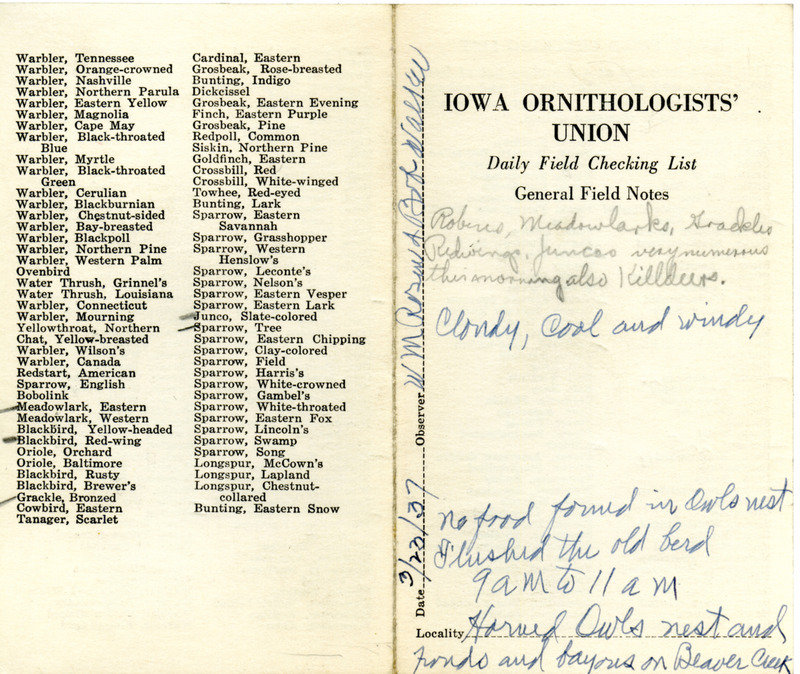 Warbler, Tennessee
Warbler, Orange-crowned
Warbler, Nashville
Warbler, Northern Parula
Warbler, Eastern Yellow
Warbler, Magnolia
Warbler, Cape May
Warbler, Black-throated
Blue
Warbler, Myrtle
Warbler, Black-throated
Green
Warbler, Cerulian
Warbler, Blackburnian
Warbler, Chestnut-sided
Warbler, Bay-breasted
Warbler, Blackpoll
Warbler, Northern Pine
Warbler, Western Palm
Ovenbird
Water Thrush, Grinnel's
Water Thrush, Louisiana
Warbler, Connecticut
Warbler, Mourning
Yellowthroat, Northern
Chat, Yellow-breasted
Warbler, Wilson's
Warbler, Canada
Redstart, American
Sparrow, English
Bobolink
Meadowlark, Eastern
Meadowlark, Western
Blackbird, Yellow-headed
Blackbird, Red-wing
Oriole, Orchard
Oriole, Baltimore
Blackbird, Rusty
Blackbird, Brewer's
Grackle, Bronzed
Cowbird, Eastern
Tanager, Scarlet
Cardinal, Eastern
Grosbeak, Rose-breasted
Bunting, Indigo
Dickcissel
Grosbeak, Eastern Evening
Finch, Eastern Purple
Grosbeak, Pine
Redpoll, Common
Siskin, Northern Pine
Goldfinch, Eastern
Crossbill, Red
Crossbill, White-winged
Towhee, Red-eyed
Bunting, Lark
Sparrow, Eastern
Savannah
Sparrow, Grasshopper
Sparrow, Western
Henslow's
Sparrow, Leconte's
Sparrow, Nelson's
Sparrow, Eastern Vesper
Sparrow, Eastern Lark
Junco, Slate-colored
Sparrow, Tree
Sparrow, Eastern Chipping
Sparrow, Clay-colored
Sparrow, Field
Sparrow, Harris's
Sparrow, White-crowned
Sparrow, Gambel's
Sparrow, White-throated
Sparrow, Eastern Fox
Sparrow, Lincoln's
Sparrow, Swamp
Sparrow, Song
Longspur, McCown's
Longspur, Lapland
Longspur, Chestnut-
collared
Bunting, Eastern Snow
Date 3/23/37 Observer W M Rosen & Bob Walker
IOWA ORNITHOLOGISTS'
UNION
Daily Field Checking List
General Field Notes
Robins, Meadowlarks, Grackles
Redwings, Juncos very numerous
this morning also Killdeers.
Cloudy, Cool and windy
no food found in Owls nest.
Flushed the old berd
9 a M to 11 a M
Locality Horned Owls nest and
ponds and bayous on Beaver Creek